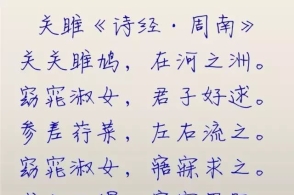 关雎《诗经·周南》
关关雎鸠，在河之洲。
窈窕淑女，君子好逑。
参差荇菜，左右流之。
窈窕淑女，寤寐求之。